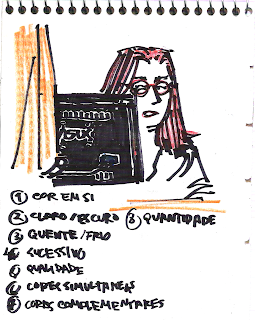 ① COR EM SI
② CLARO/ESCURO ⑧ QUANTIDADE
③ QUENTE/FRIO
4 SUCESSIVO
5 QUALIDADE
6 CORES SIMULTANEAS
7 CORES COMPLEMENTARES